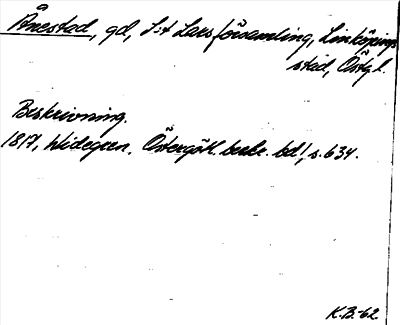 Ånestad, gd, S:t Lars församling, Linköpings
stad, Östgl.
Beskrivning.
1817, Widegren. Östergötl. beskr. bd 1, s. 634.
K.B.-62